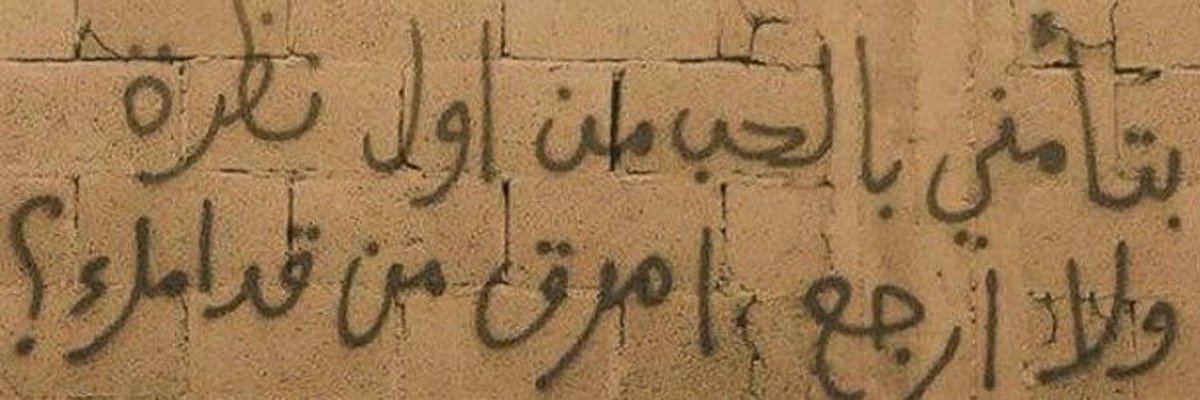 بتأمني بالحب من اول نظره
ولا ارجع ، امرق من قدامك ؟